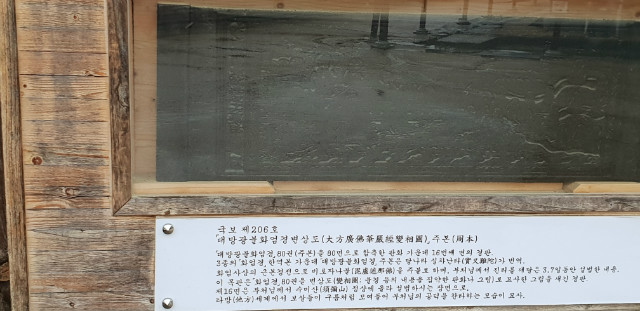 국보 제206호
대방광불화엄경변상도(大方廣佛華嚴經變相圖)_주본(周本)
「대방광불화엄경」80권(주본)을 80면으로 압축한 판화 가운데 16번째 면의 경판.
3종의「화엄경」한역본 가운데 대방광불화엄경 주본은 당나라 실차난타(實叉難陀)가 번역.
화엄사상의 근본경전으로 비로자나불(毘盧遮那佛)을 주불로 하며, 부처님께서 진리를 깨닫고 3.7일동안 설법한 내용.
이 목판은「화엄경」80권본 변상도(變相圖: 불경 등의 내용을 집약한 판화나 그림)로 묘사한 그림을 새긴 경판.
제16면은 부처님께서 수미산(須彌山) 정상에 올라 설법하시는 장면으로,
타방(他方)세계에서 보살들이 구름처럼 모여들어 부처님의 공덕을 찬탄하는 모습이 묘사.